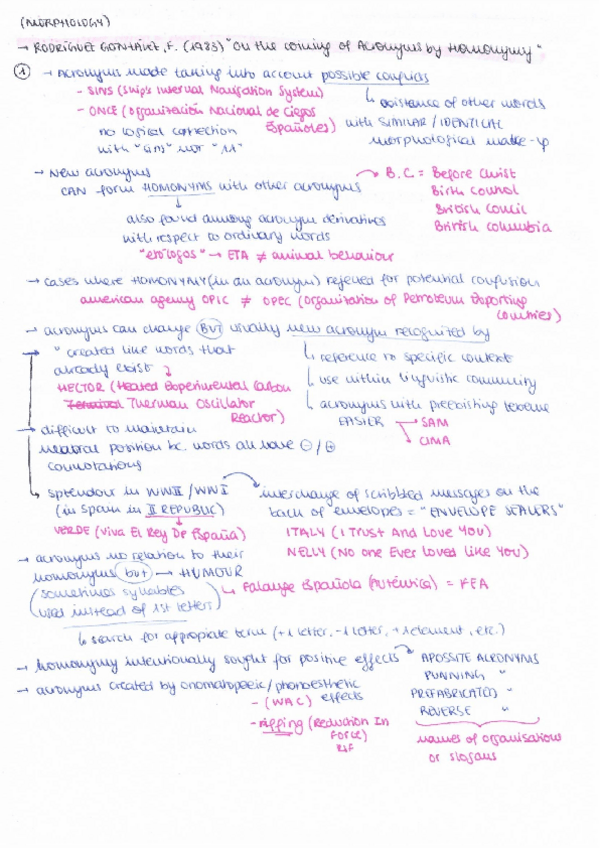 (MORPHOLOGY)
→ RODRÍGUEZ GONZÁLEZ, F. (1983) "On the coining of Acronyms by Homonymy"
① → Acronyms made taking into account possible
- SINS (Ship's Inertial Navigation System)
↳ existence of other words
- ONCE (Organización Nacional de Ciegos Españoles)
with SIMILAR / IDENTICAL
no logical connection
morphological make-up
with "sins" nor "11"
→ New acronyms
B.C. = Before Christ
CAN form HOMONYMS with other acronyms
Birth Council
British Council
also found among acronym derivatives
British Columbia
with respect to ordinary words
"etólogos" → ETA ≠ animal behaviour
→ cases where HOMONYMY (in an acronym) rejected for potential confusion
american agency OPIC ≠ OPEC (Organization of Petroleum Exporting Countries)
→ acronyms can change BUT usually new acronym recognized by
→ " created like words that
↳ reference to specific context
already exist
↳ use within linguistic community
HECTOR (Heated Experimental Carbon
Thermal Oscillator
↳ acronyms with preexisting become
Reactor)
EASIER → SAM
→ CIMA
→ difficult to maintain
neutral position bc. words all have ⊖/⊕
connotations
→ splendour in WWII / WWI
interchange of scribbled messages on the
(in Spain in II REPUBLIC)
back of envelopes = "ENVELOPE SEALERS"
VERDE (Viva El Rey De España)
ITALY (I Trust And Love You)
NELLY (No one Ever Loved Like You)
→ acronyms no relation to their
homonyms but → HUMOUR
(sometimes syllables
↳ Falange Española (Auténtica) = FEA
uses instead of 1st letters)
↳ search for appropiate term (+1 letter, -1 letter, +1 element, etc.)
→ homonymy intentionally sought for positive effects
APOSSITE ACRONYMS
PUNNING "
→ acronyms created by onomatopoeic / phonoesthetic effects
PREFABRICATED "
- (WAC)
REVERSE "
- riffing (Reduction In Force) RIF
names of organisations
or slogans